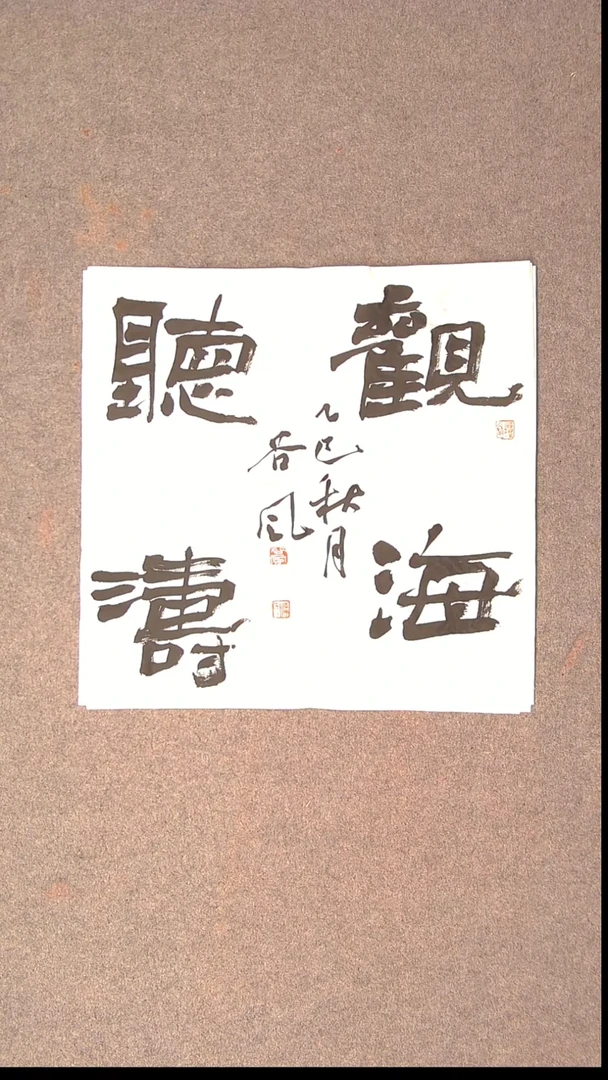 觀海
聽濤
乙巳秋月
谷風